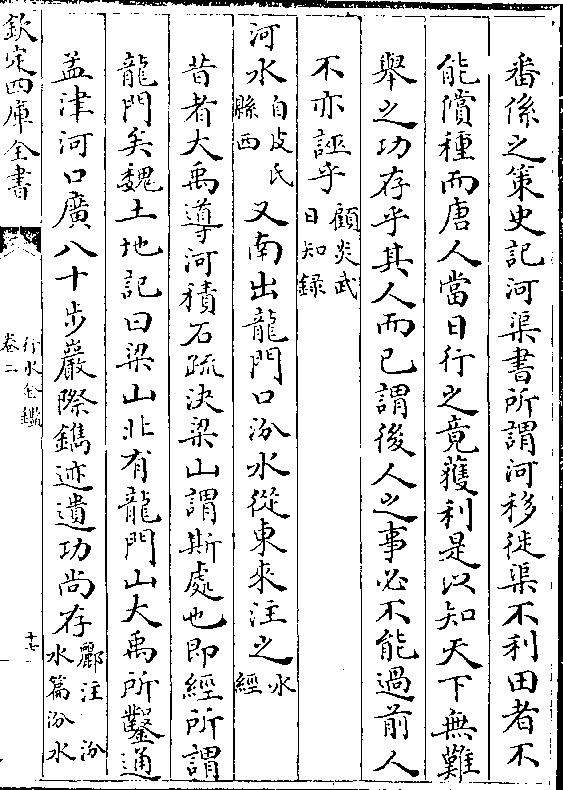 番係之策史記河渠書所謂河移徙渠不利田者不
能償種而唐人當日行之竟獲利是以知天下無難
舉之功存乎其人而已謂後人之事必不能過前人
不亦誣乎顧炎武日知録
河水自皮氏縣西又南出龍門口汾水從東來注之水經
昔者大禹導河積石疏決梁山謂斯處也即經所謂
龍門矣魏土地記曰梁山北有龍門山大禹所鑿通
孟津河口廣八十步巖際鐫迹遺功尚存酈注汾水篇汾水
欽定四庫全書
行水金鑑
卷二
十七